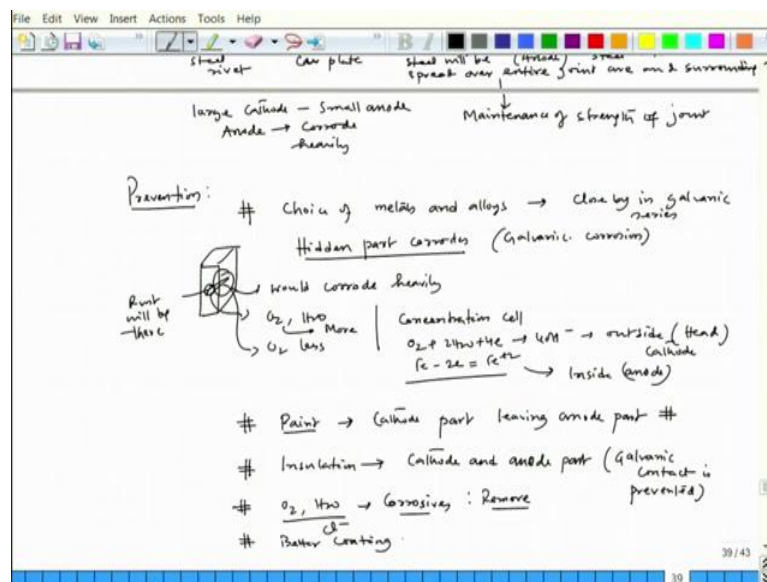 File Edit View Insert Actions Tools Help
steel rivet
Cu plate
steel will be (Anode) steel
spread over entire joint are and surrounding
large Cathode – Small anode
Anode → Corrode heavily
Maintenance of strength of joint
Prevention:
# Choice of metals and alloys → Close by in galvanic series
Hidden part corrodes (Galvanic corrosion)
would corrode heavily
Rivet will be there
O2, H2O → More
O2 less
Concentration cell
O2 + 2H2O + 4e → 4OH- → outside (Head) Cathode
Fe - 2e = Fe+2 → Inside (anode)
# Paint → Cathode part leaving anode part #
# Insulation → Cathode and anode part (Galvanic contact is prevented)
# O2, H2O → Corrosives : Remove
Cl-
# Better coating.
39 / 43
39